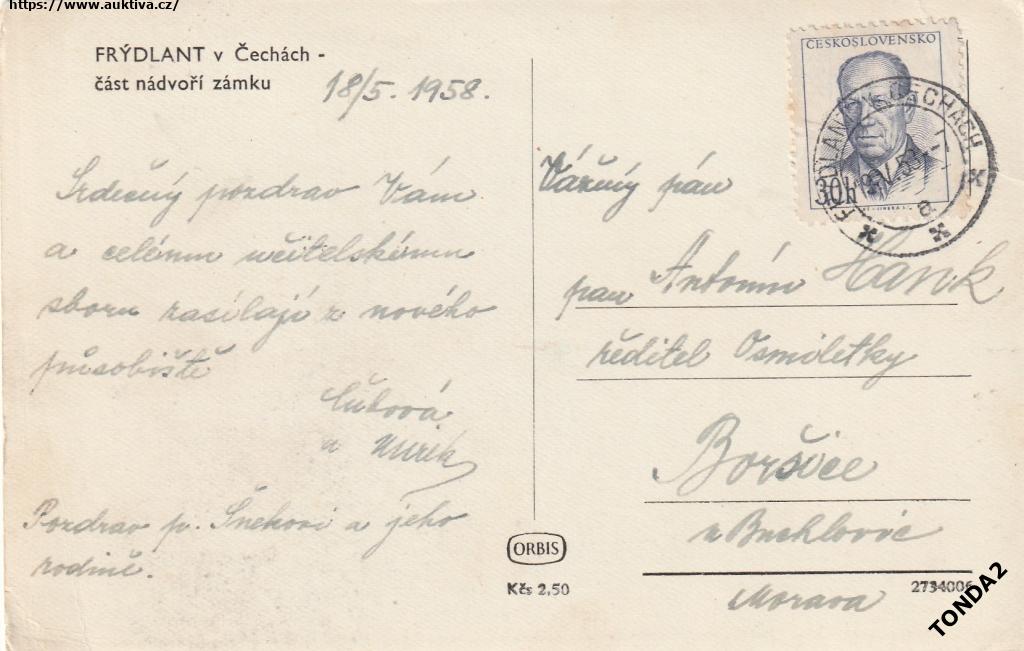 https://www.auktiva.cz/
FRÝDLANT v Čechách -
část nádvoří zámku
18/5. 1958.
Srdečný pozdrav Vám
a celému učitelskému
sboru zasílají z nového
působiště
a
Pozdrav p. Šnekovi a jeho
rodině.
ČESKOSLOVENSKO
30h
ČECHÁCH
a
Vážený pán
pan Antonín Hanák
ředitel Osmiletky
Boršice
u Buchlovic
Morava
ORBIS
Kčs 2,50
2734006
TONDA2